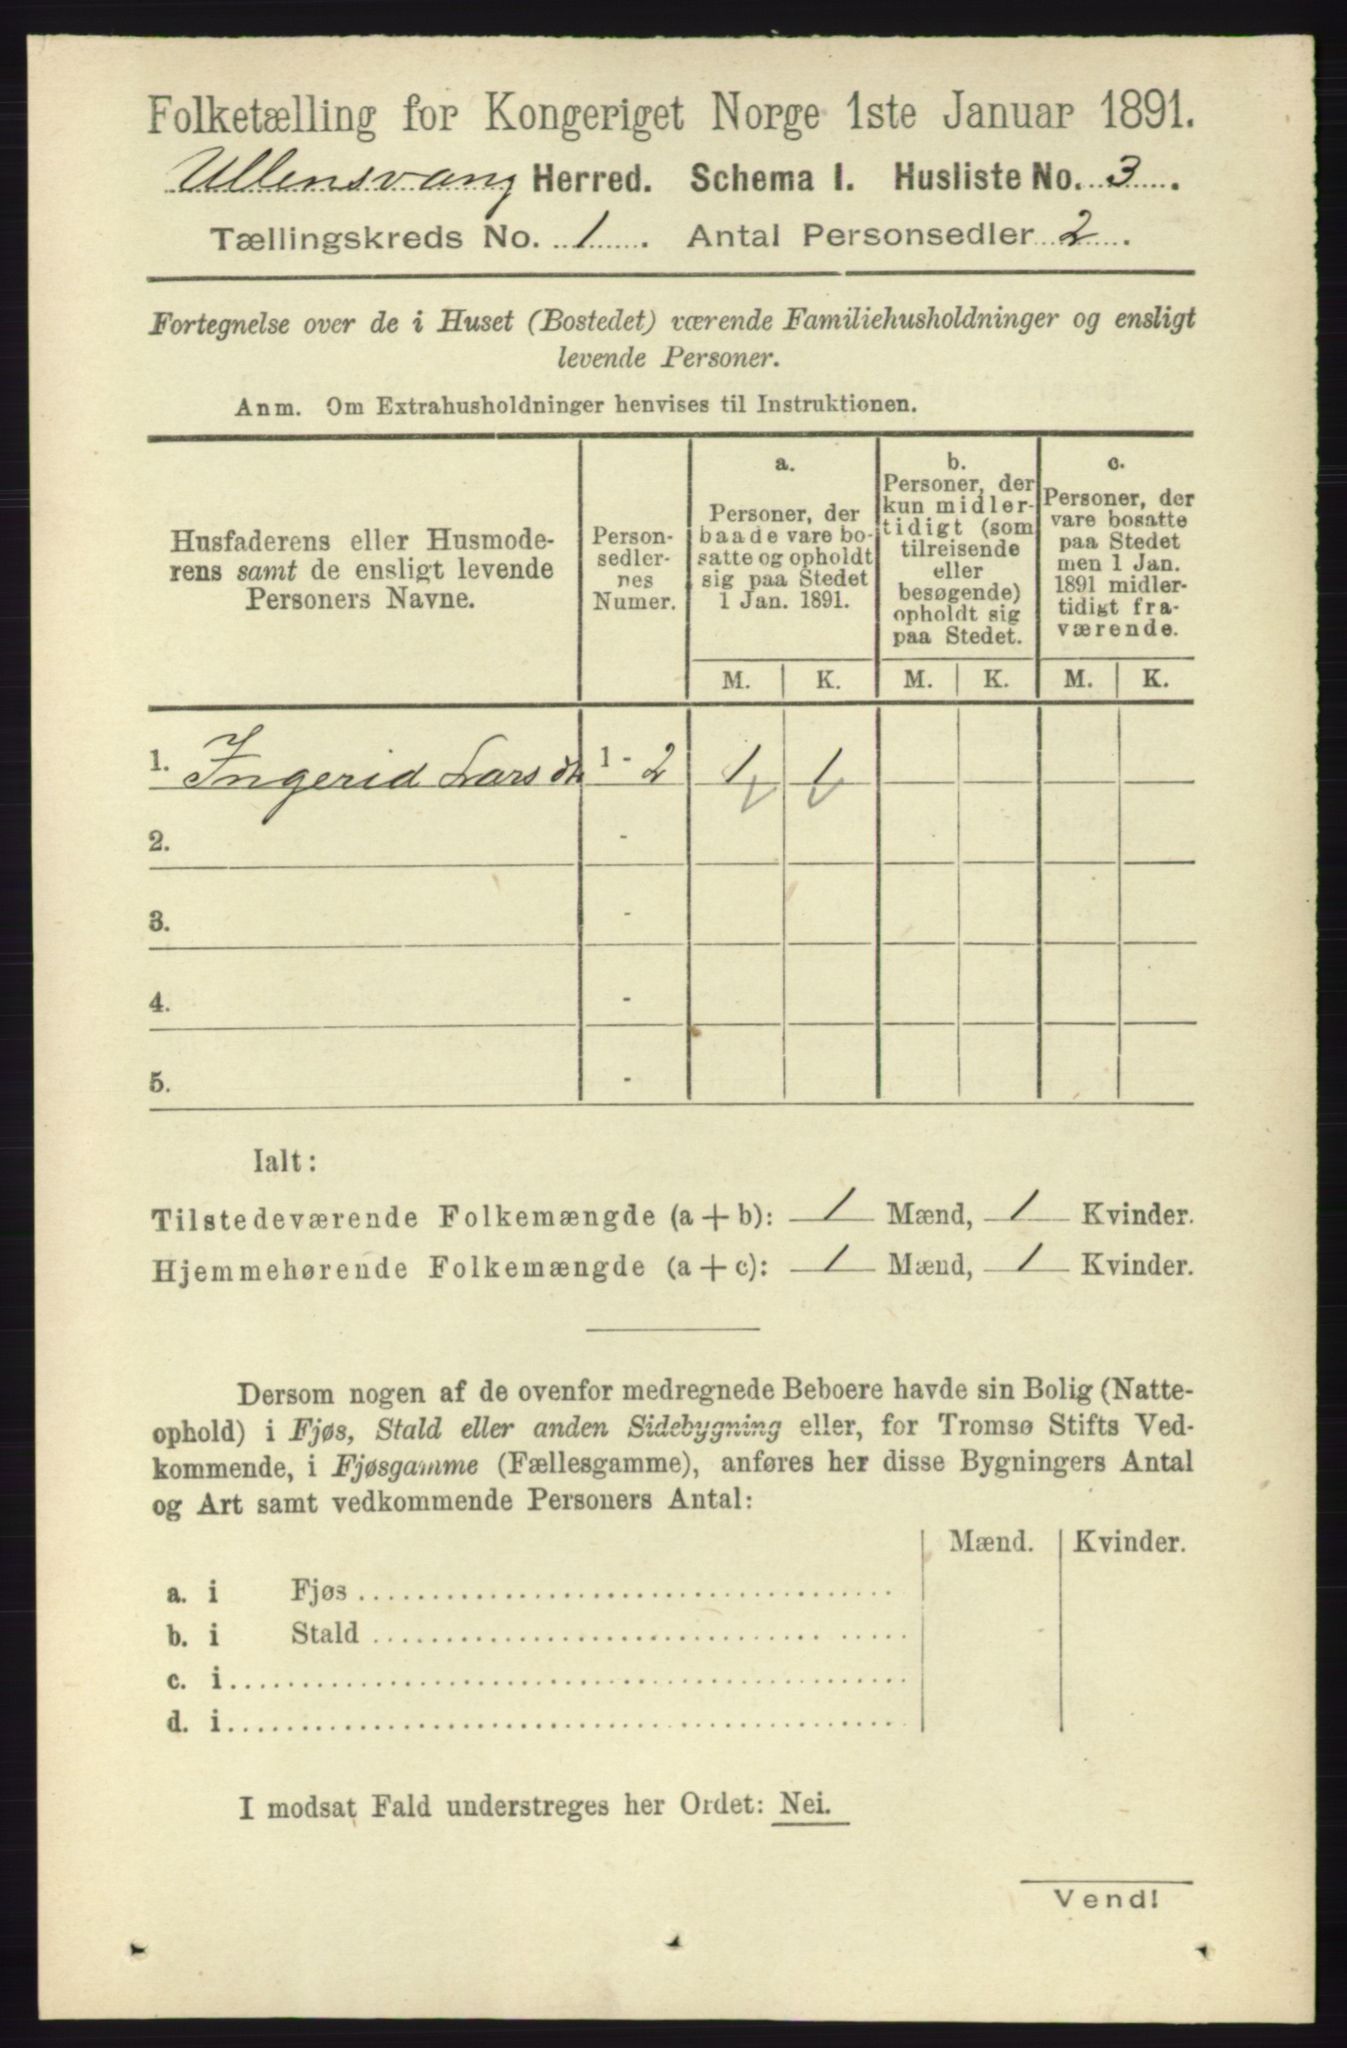 Folketælling for Kongeriget Norge 1ste Januar 1891.
Ullensvang Herred. Schema I. Husliste No. 3.
Tællingskreds No. 1. Antal Personsedler 2.
Fortegnelse over de i Huset (Bostedet) værende Familiehusholdninger og ensligt
levende Personer.
Anm. Om Extrahusholdninger henvises til Instruktionen.
Husfaderens eller Husmode-
rens samt de ensligt levende
Personers Navne.
Person-
sedler-
nes
Numer.
a.
Personer, der
baade vare bo-
satte og opholdt
sig paa Stedet
1 Jan. 1891.
b.
Personer, der
kun midler-
tidigt (som
tilreisende
eller
besøgende)
opholdt sig
paa Stedet.
c.
Personer, der
vare bosatte
paa Stedet
men 1 Jan.
1891 midler-
tidigt fra-
værende.
M. K. M. K. M. K.
1. Ingerid Larsdtr 1 - 2 1 1
2. -
3. -
4. -
5. -
Ialt:
Tilstedeværende Folkemængde (a + b): 1 Mænd, 1 Kvinder.
Hjemmehørende Folkemængde (a + c): 1 Mænd, 1 Kvinder.
Dersom nogen af de ovenfor medregnede Beboere havde sin Bolig (Natte-
ophold) i Fjøs, Stald eller anden Sidebygning eller, for Tromsø Stifts Ved-
kommende, i Fjøsgamme (Fællesgamme), anføres her disse Bygningers Antal
og Art samt vedkommende Personers Antal:
Mænd. Kvinder.
a. i Fjøs
b. i Stald
c. i
d. i
I modsat Fald understreges her Ordet: Nei.
Vend!